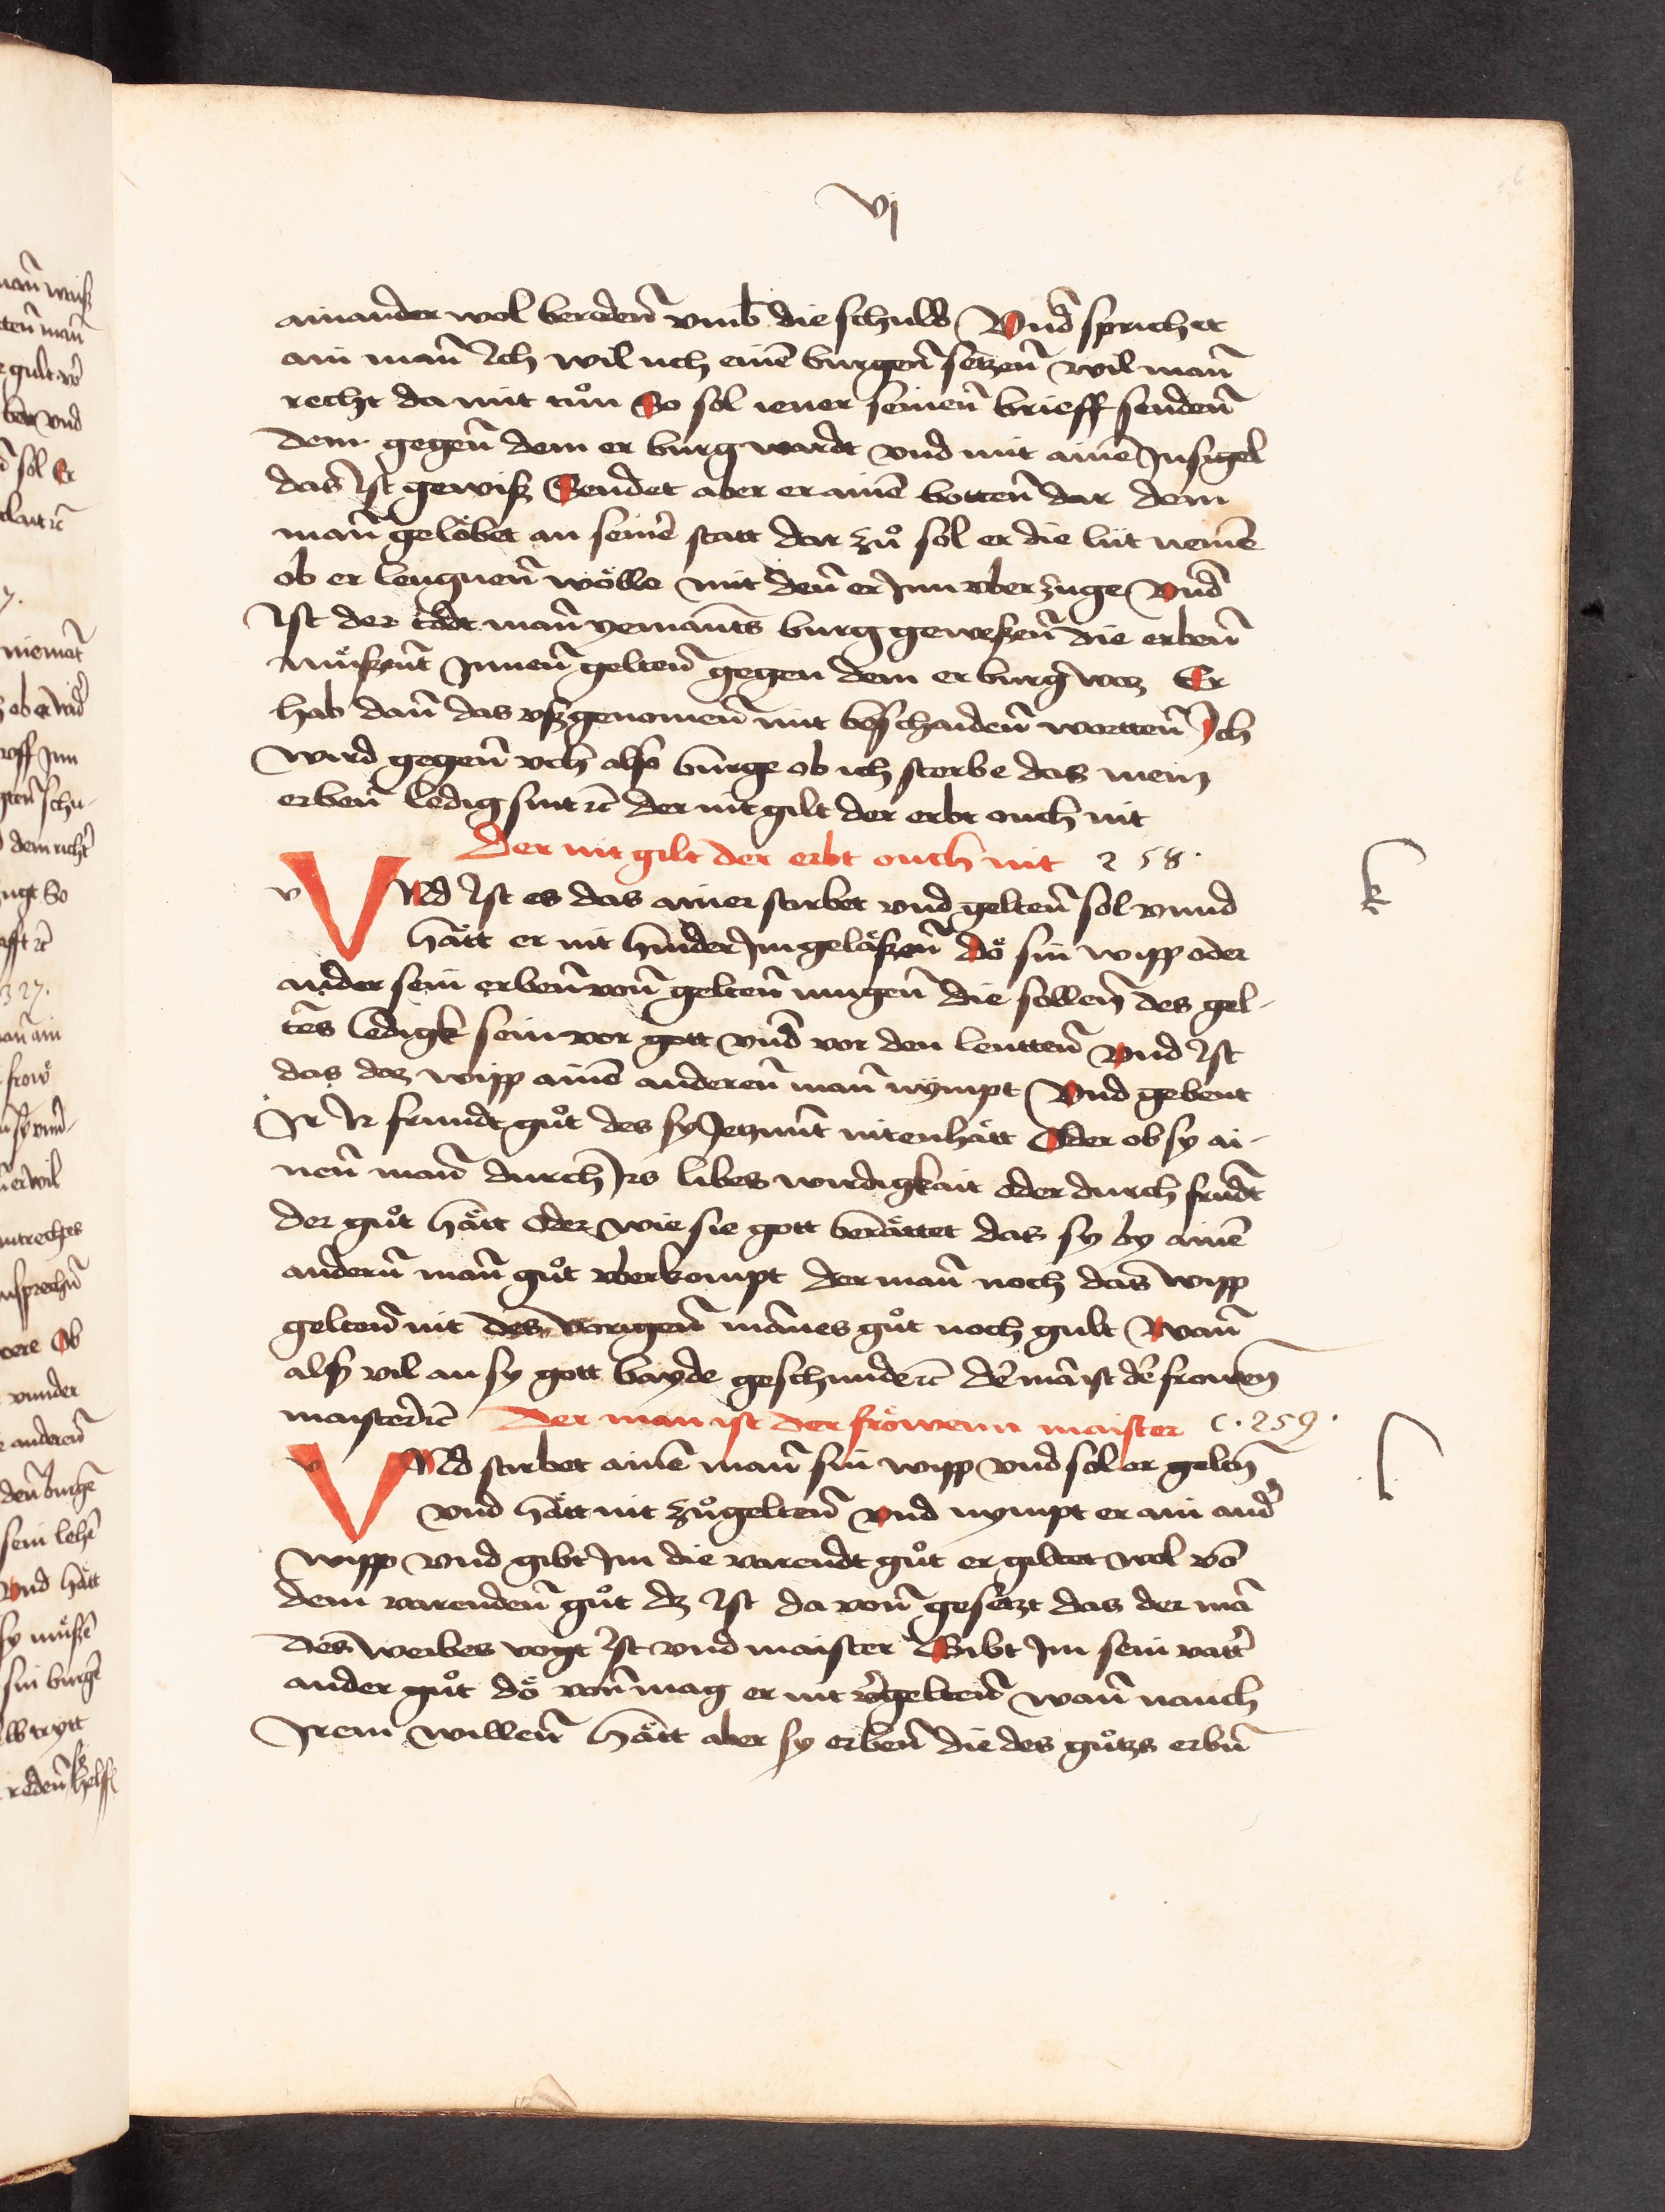 vj
ainander wol beredenn̄ vmb die schuld Vnd sprichet
ain man̄ Ich wil uch einē burgen̄ setzen̄ wil man̄
recht da mit tůn So sol iener seinen̄ brieff senden̄
dem gegen̄ dem er burg wardt vnd mit ainē Insigel
das Ist gewiß Sendet aber er ainē botten̄ dar dem
man̄ gelöbet an seinē statt dar zů sol er die lüt nemē
ob er leugnen̄ wölle mit den̄ er Inn vberzuge Vnd
Ist der todt man̄ yemants burg geweßen̄ die erben̄
müßent Innen̄ gelten̄ gegen dem er burg waz Er
hab dan̄ das vßgenomen̄ mit beschaiden̄ wortten̄ Ich
wird gegen̄ vch also bürge ob ich sterbe das mein
erben̄ ledig sint ꝛc̄ der nit gilt der erbt ouch nit
Der nit gilt der erbt ouch nit 258.
v VNd Ist es das ainer starbet vnd gelten̄ sol vnnd
hätt er nit hinder Im geläßen̄ dö sin wipp oder
ander sein erben̄ von̄ gelten̄ mugen̄ die sollen̄ des gel-
tes̄ ledigk sein vor gott vnd vor den leutten̄ Vnd Ist
das daz wipp ainē anderen̄ man̄ nympt Vnd gebent
Ir Ir frundt gůt des sy Jetzunt nit enhätt Oder ob sy ai-
nen̄ man̄ durch Irs libes wirdigkait oder durch frūdt
der gůt hätt oder wie sie gott berättet das sy by ainē
andern̄ man̄ gůt vberkompt der man̄ noch das wipp
gelten̄ nit des vorigen̄ mānes gůt noch gult Wan̄
alß vil an sy gott bayde geschunde ꝛc̄ dē mā ist dē frowen̄
maister ꝛc̄ Der man ist der fröwenn maister c. 259.
v VNd starbet ainē man̄ sin wipp vnd sol er geltn̄
vnd hätt nit zůgelten̄ Vnd nympt er ain and̓
wipp vnd gibt Im die varendt gůt er giltet wol vō
dem varenden̄ gůt dz Ist da von̄ gesetzt das der mā
des weibes vogt Ist vnd maister Gibt Im sein vatt̓
ander gůt dö von̄ mag er nit v̓gelten̄ wan̄ nauch
Irem willen̄ hätt aber sy erben̄ die des gůtzs erbn̄
k
l